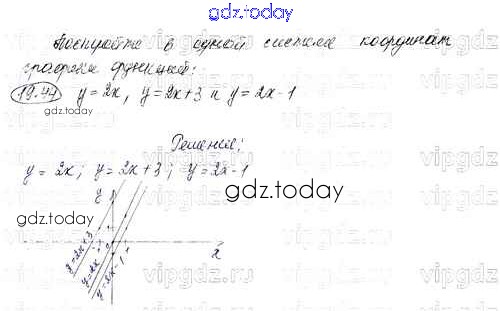 gdz.today
Постройте в одной системе координат
графики функций:
19.44 y = 2x, y = 2x + 3 и y = 2x - 1
gdz.today
Решение:
y = 2x; y = 2x + 3; y = 2x - 1
gdz.today
gdz.today
y
x
y = 2x + 3
y = 2x
y = 2x - 1
vipgdz.net
gdz.today